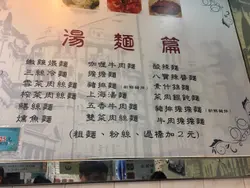 湯麵篇
嫩雞煨麵
三絲冷麵
雪菜肉絲麵
榨菜肉絲麵
鱔絲麵
燻魚麵
咖喱牛肉麵
擔擔麵
豬排麵
上海湯麵
五香牛肉麵
雙菜肉絲麵
酸辣麵
八寶辣醬麵
素什錦麵
菜肉餛飩麵
豬排擔擔麵
牛肉擔擔麵
(粗麵、粉絲、過橋加2元)